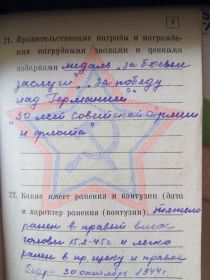 9
21. Правительственные награды и награжде-
ния нагрудными знаками и ценными
подарками медаль „за боевые
заслуги", „за победу
над Германией"
„30 лет Советской армии
и флота"
22. Какие имеет ранения и контузии (дата
и характер ранения (контузии) тяжело
ранен в правый висок
головы 15.2-45г и легко
ранен в пр. щеку и правое
30 октября 1944г.